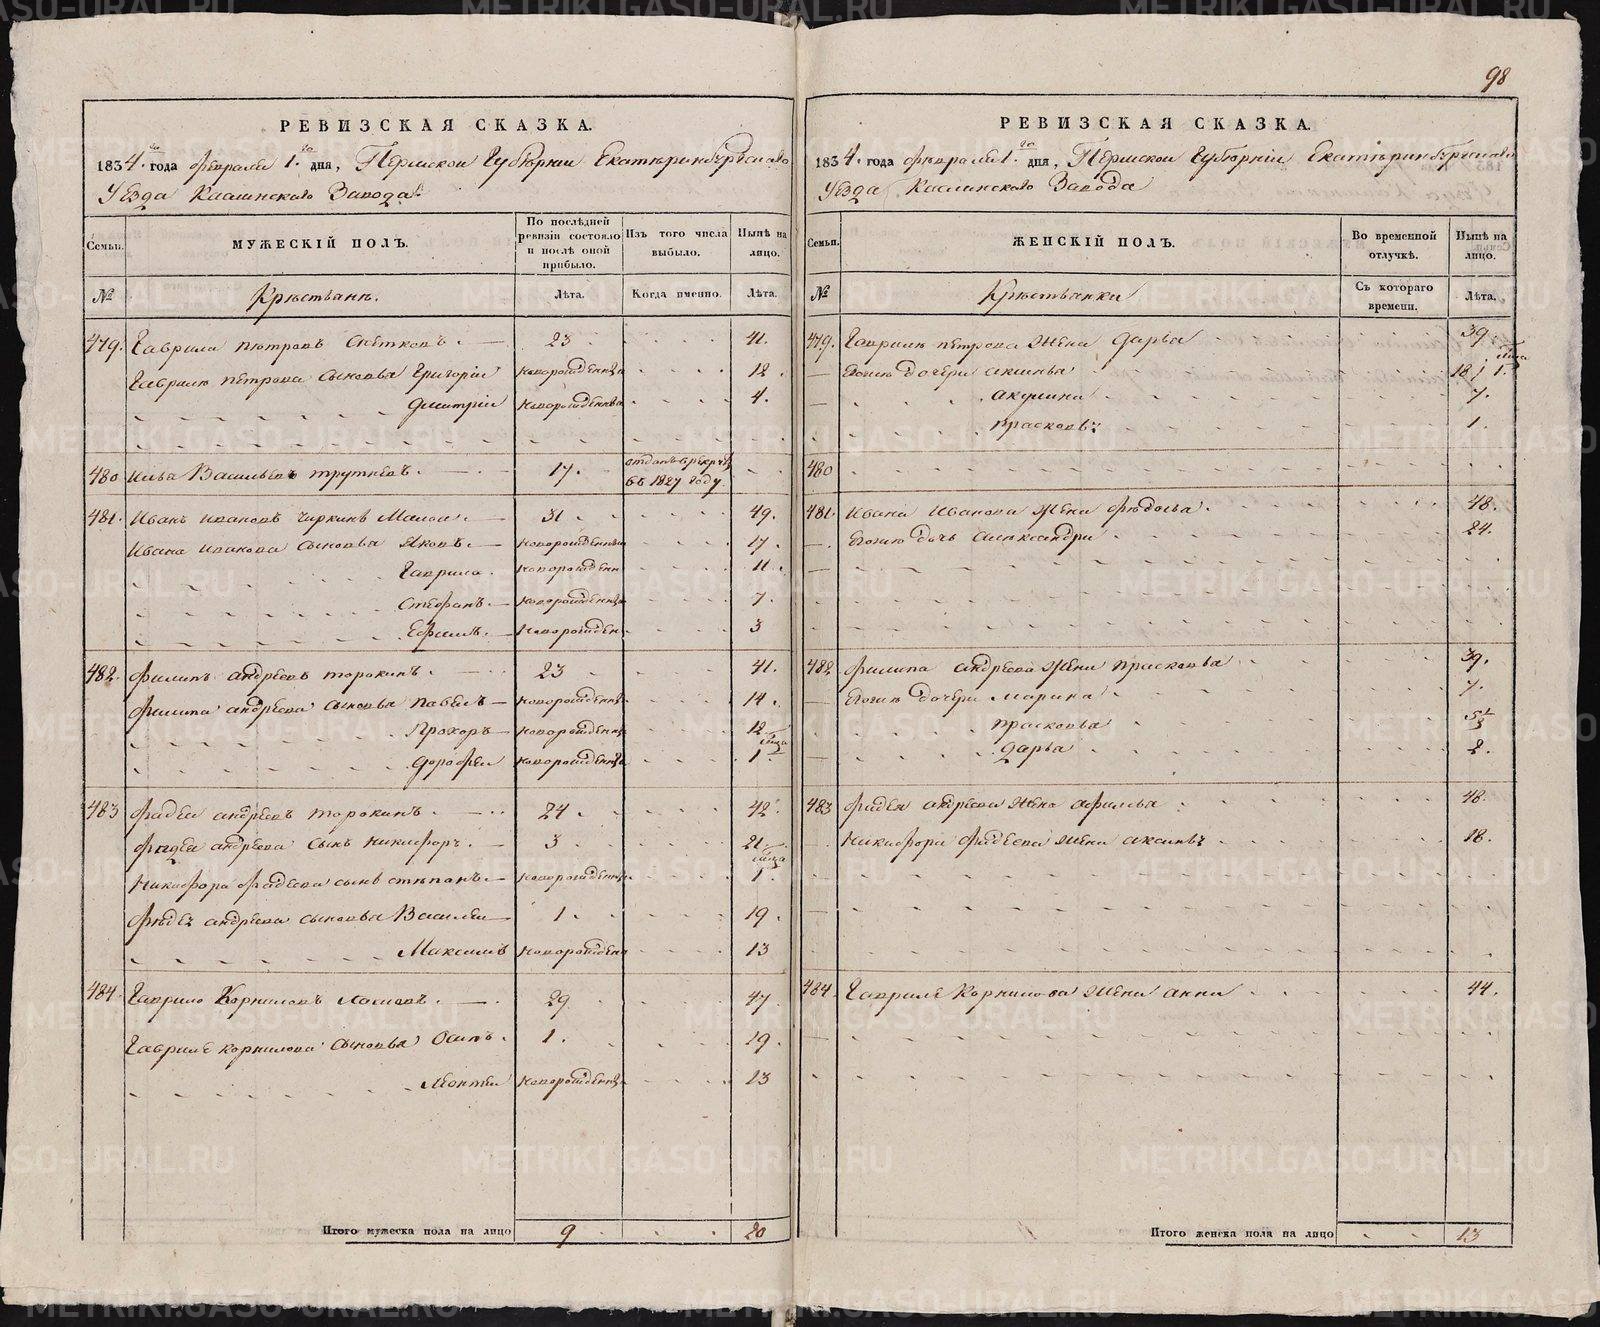 98
РЕВИЗСКАЯ СКАЗКА.
1834. года февраля 1. дня, Пермской Губернии Екатеринбургскаго
Уезда Каслинскаго Завода.
Семьи.
МУЖЕСКІЙ ПОЛЪ.
По послѣдней ревизіи состояло и послѣ оной прибыло.
Изъ того числа выбыло.
Нынѣ на лицо.
№ Крестьяне. Лѣта. Когда именно. Лѣта.
479. Гаврила петровъ 23 41.
Гаврилы петрова сыновья Григорій новорожденны 12.
Дмитрій новорожденны 4.
480 Илья Васильевъ трутневъ. 17. отданъ в рекруты
въ 1827 году
481. Иванъ ивановъ чиркинъ Малой. 31 49.
Ивана иванова сыновья Яковъ. новорожденны 17.
Гаврила. новорожденн 11.
Стефанъ. новорожденны 7.
Ефимъ. новорожден 3
482. Филипъ андреевъ торокинъ. 23 41.
Филипа андреева сыновья павелъ новорожденны 14.
Прохоръ новорожденны 12
дорофеи новорожденны 1.
483 Фадеи андреевъ торокинъ. 24 42.
Фадея андреева сынъ никифоръ. 3 21.
Никифора Фадеева сынъ степанъ. новорожденны 1.
андреева сыновья Василеи 1. 19.
Максимъ новорожден 13
484. Гаврило Корниловъ 29 47
Гаврилы корнилова сыновья Осипъ. 1. 19.
леонтеи новорожденны 13
Итого мужеска пола на лицо 9 20
РЕВИЗСКАЯ СКАЗКА.
1834. года февраля 1. дня, Пермской Губерніи Екатеринбургскаго
Уезда Каслинскаго Завода
Семьи.
ЖЕНСКІЙ ПОЛЪ.
Во временной отлучкѣ.
Нынѣ на лицо.
№ Крестьянки Съ котораго времени. Лѣта.
479. Гаврилы петрова жена дарья 39
дочери 18
акулина 7.
прасковья 1.
480
481. Ивана Иванова жена федосья. 48.
дочь александра 24.
482 Филипа андреева жена прасковья 39.
дочери марина 7.
прасковья 5
дарья 2.
483 Фадея андреева жена 48.
Никифора Фадеева жена аксинья 18.
484. Гаврилы Корнилова жена анна 44.
Итого женска пола на лицо 13
METRIKI.GASO-URAL.RU